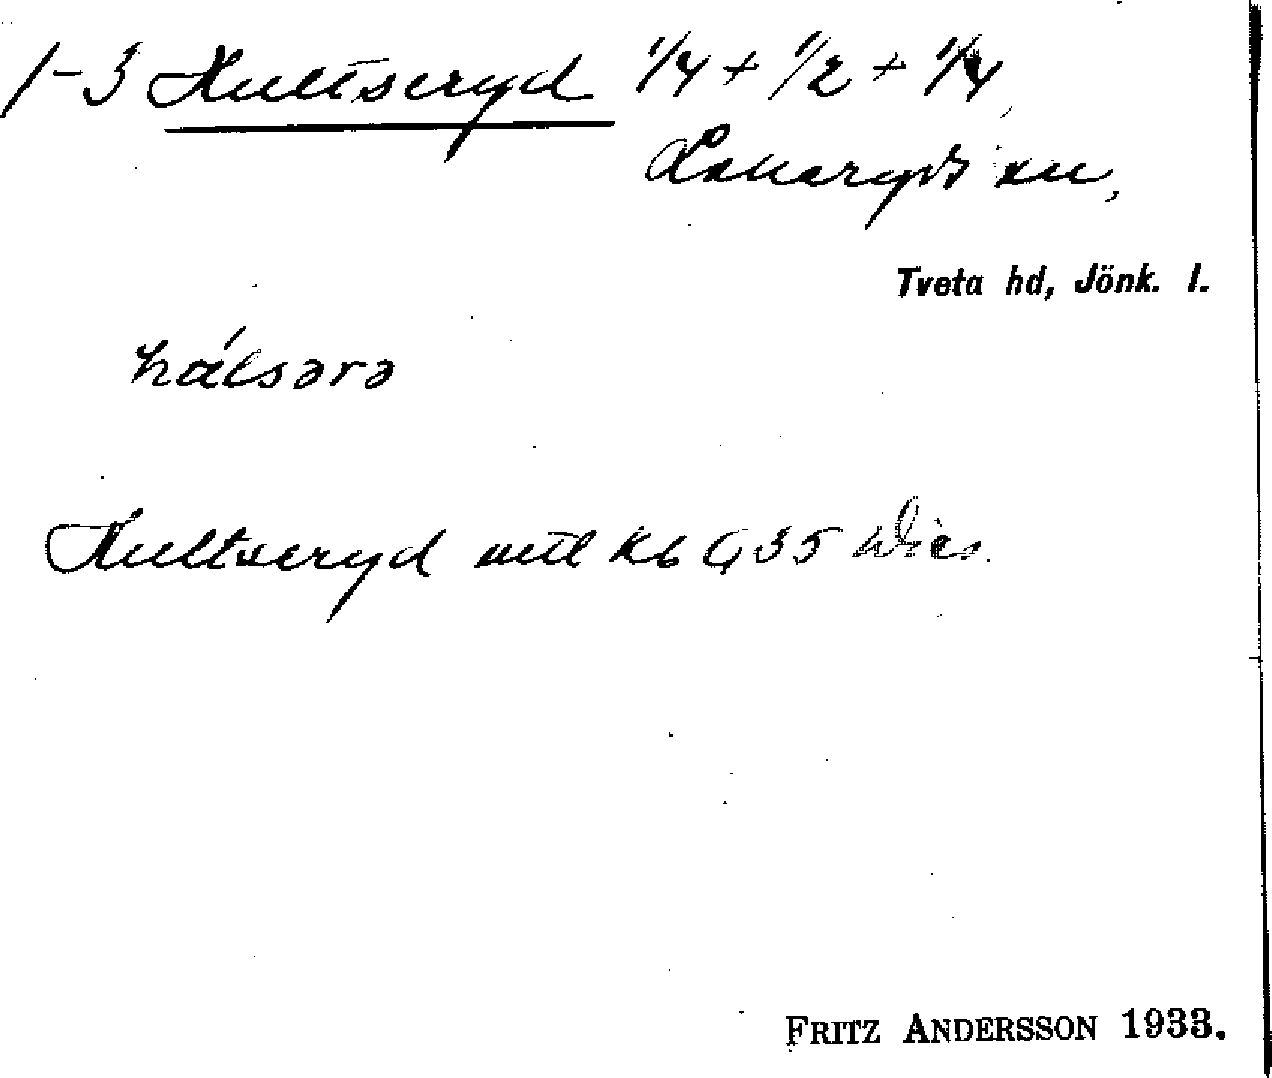 1-3 Hultseryd 1/4 + 1/2 + 1/4
Lekeryds sn,
Tveta hd, Jönk. l.
hálsərə
Hultseryd mtl kb 35
FRITZ ANDERSSON 1933.